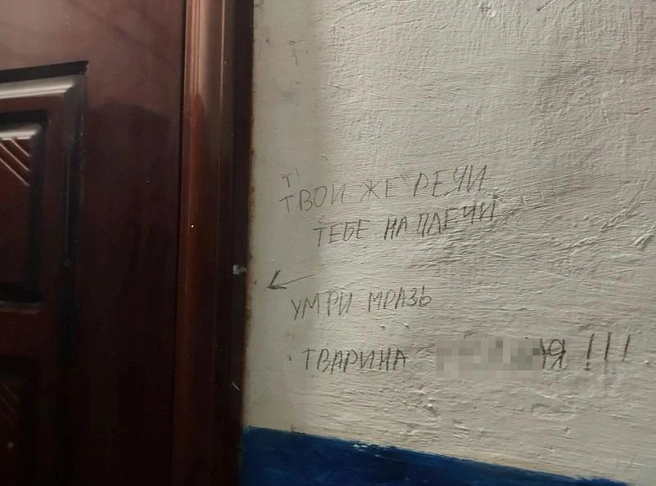 ТВОИ ЖЕ РЕЧИ
ТЕБЕ НА ПЛЕЧИ
УМРИ МРАЗЬ
ТВАРИНА !!!